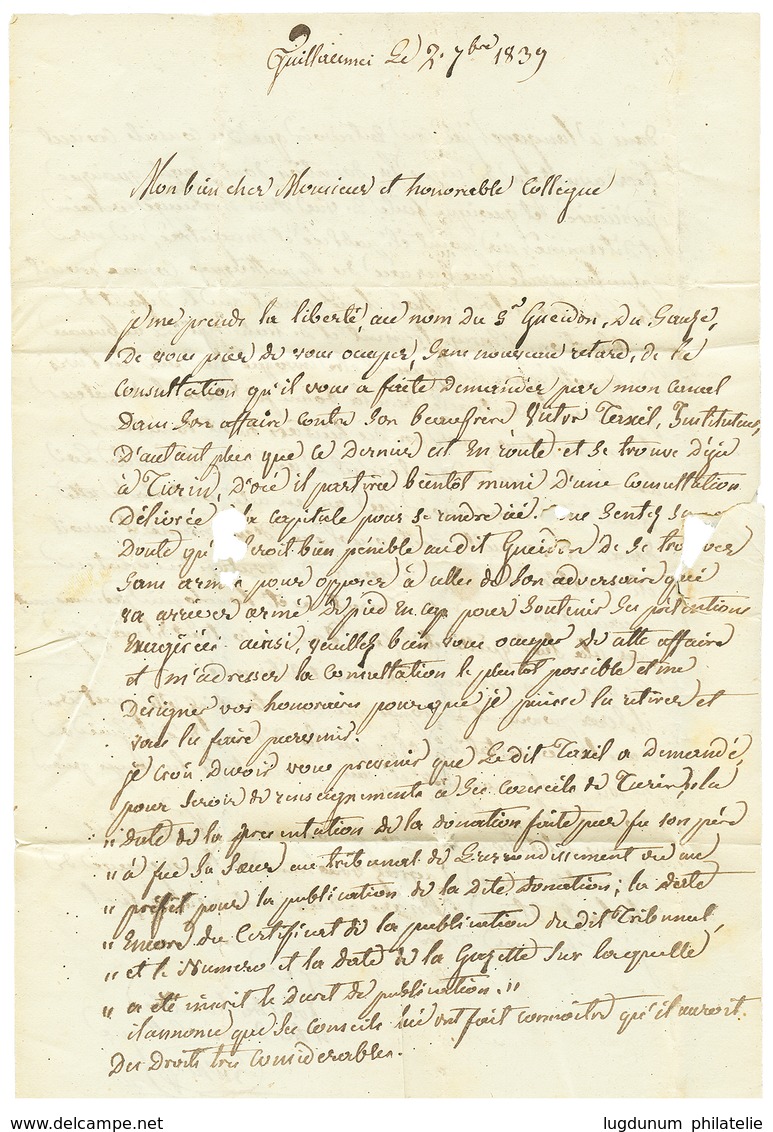 Guillaumes Le 2. 7bre 1839
Mon bien cher Monsieur et honorable Collègue
je me prends la liberté, au nom du Sr Gueidon, du Sauze,
De vous prier de vous occuper, sans nouveau retard, de la
Consultation qu'il vous a faite demander par mon canal
Dans son affaire contre son beaufrère Victor Taxil, Instituteur,
D'autant plus que ce Dernier est En route et se trouve Déjà
à Turin, d'où il partira bientôt muni d'une Consultation
Délivrée la capitale pour se rendre ici. sentez sans
Doute qu' seroit bien pénible audit Gueidon De se trouver
sans armes pour opposer à celles de son adversaire qui
va arriver armé De pied En cap pour soutenir ses prétentions
Exagérées. ainsi, veuillez bien vous occuper de cette affaire
et m'adresser la Consultation le plutôt possible et me
Désigner vos honoraires pour que je puisse la retirer et
vous les faire parvenir.
je crois Devoir vous prevenir que Ledit Taxil a Demandé,
pour servir de renseignements à ses Conseils de Turin, la
" date de la presentation de la donation faite par feu son père
" à feu sa sœur au tribunal de L'arrondissement ou au
" préfet pour la publication de la dite donation; la date
" Encore du Certificat de la publication du dit Tribunal,
" et le Numero et la date de la Gazette sur laquelle
" a été inserit le Decret de publication."
il annonce que ses Conseils lui ont fait connoître qu'il auroit
Des Droits très considerables.
www.delcampe.net
lugdunum philatelie